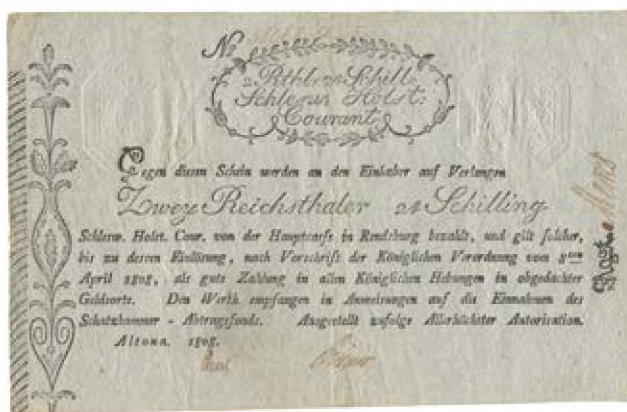 No
2 Rthlr 24 Schill.
Schlesw. Holst:
Courant
Gegen diesen Schein werden an den Einhaber auf Verlangen
Zwey Reichsthaler 24 Schilling
Schlesw. Holst. Cour. von der Hauptcasse in Rendsburg bezahlt, und gilt solcher,
bis zu dessen Einlösung, nach Vorschrift der Königlichen Verordnung vom 8ten
April 1808, als gute Zahlung in allen Königlichen Hebungen in abgedachter
Geldsorte. Den Werth empfangen in Anweisungen auf die Einnahmen des
Schatzkammer - Abtragsfonds. Ausgestellt zufolge Allerhöchster Autorisation.
Altona. 1808.